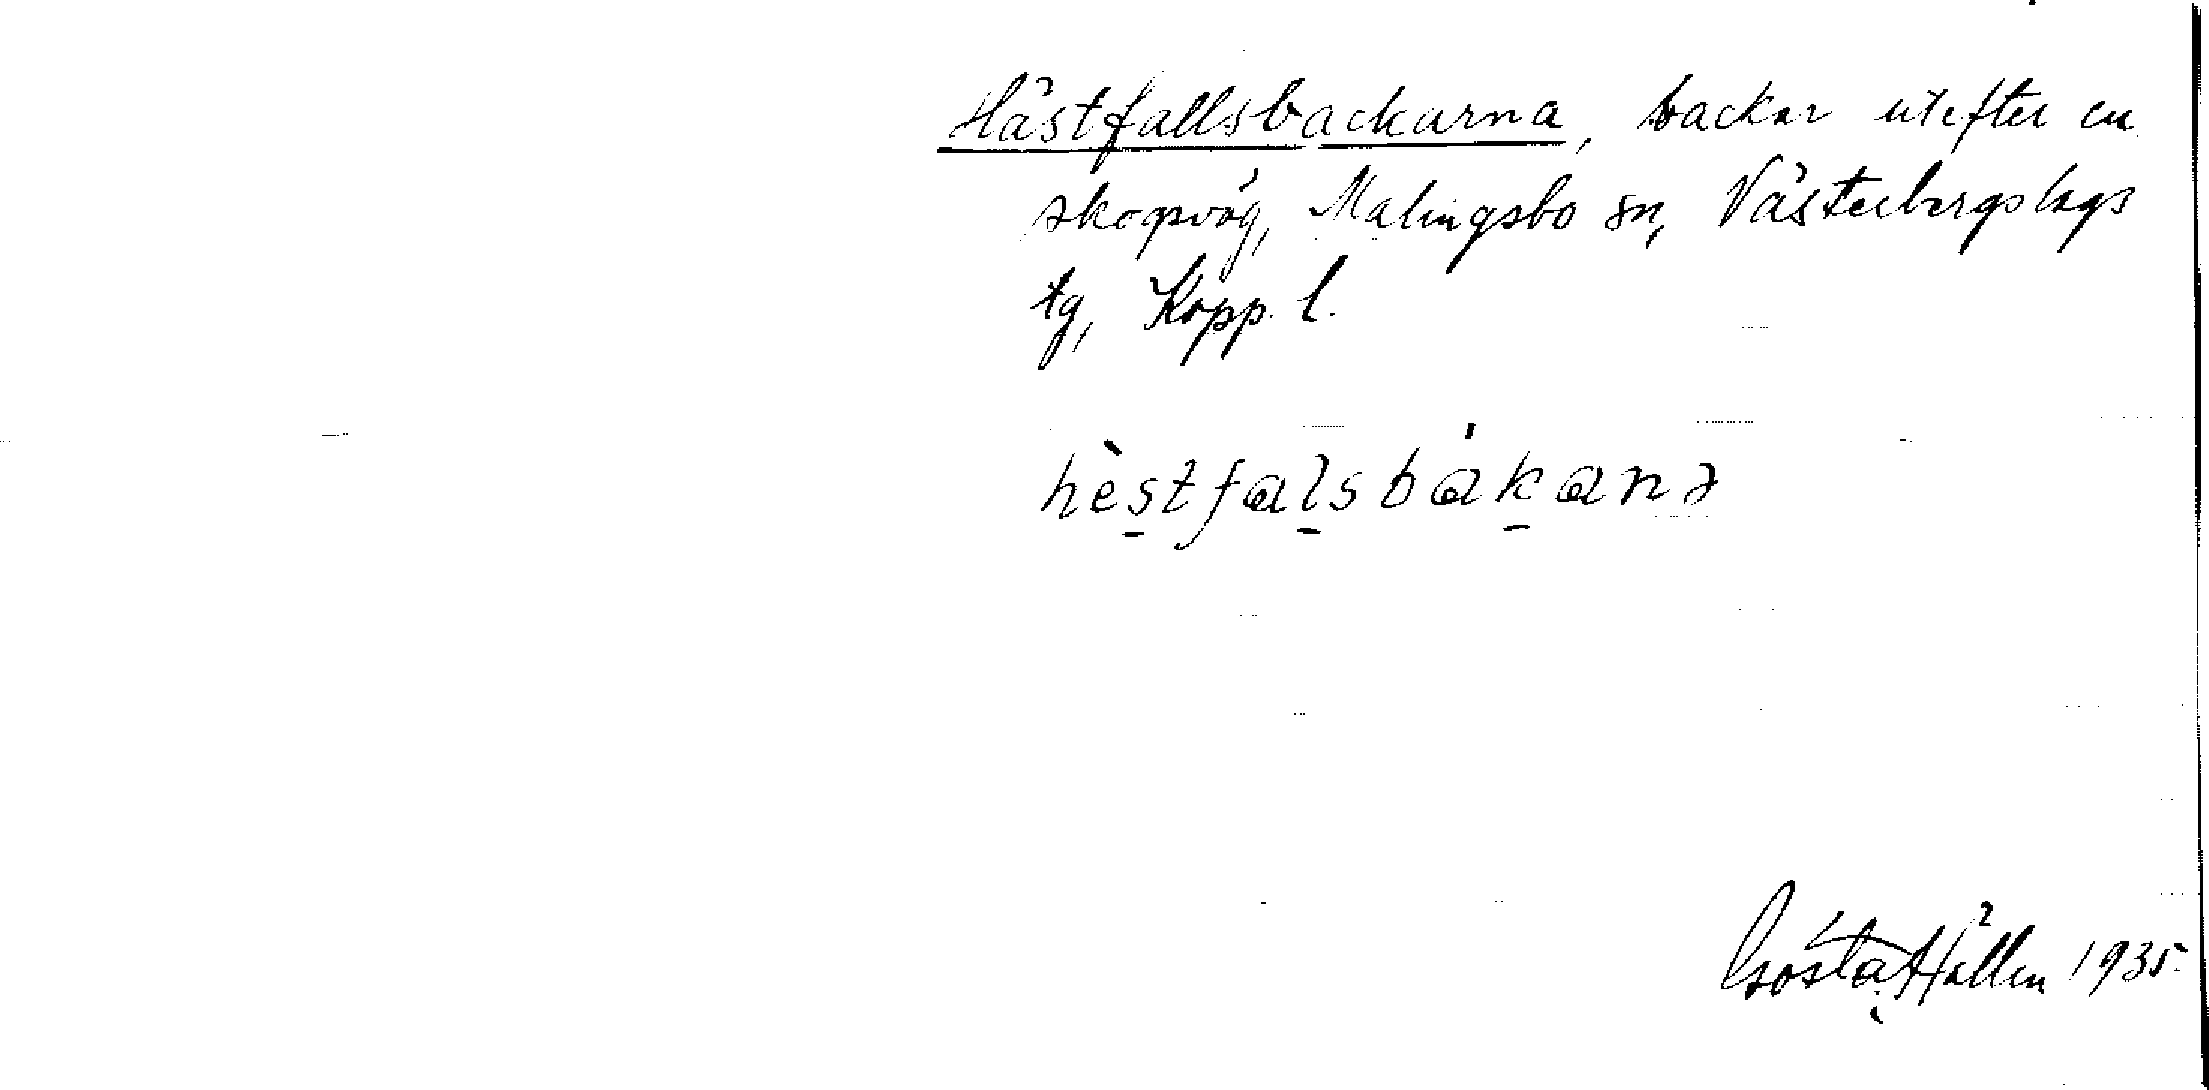 Hästfallsbackarna, backar utefter en
skogsväg, Malingsbo sn, Västerbergslags
tg, Kopp. l.
hèstfalsbákanə
Gösta Hällen 1935.